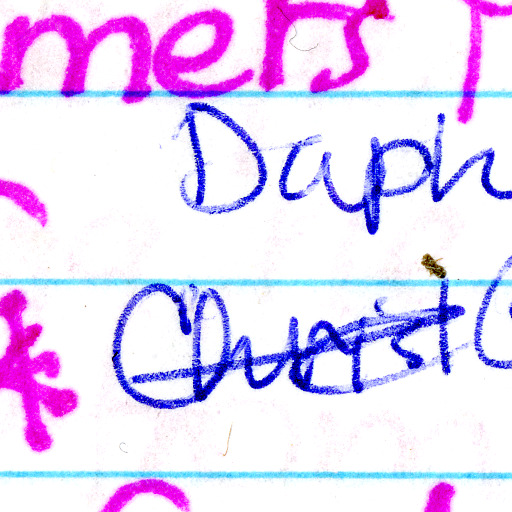 mers
Daph
Christ